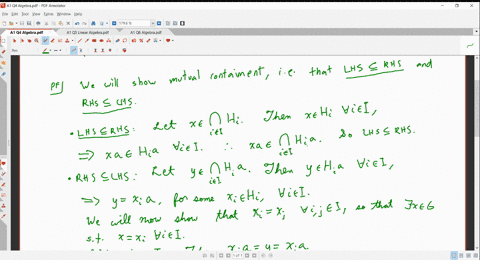 A1 Q4 Algebra.pdf - PDF Annotator
A1 Q4 Algebra.pdf
A1 Q5 Linear Algebra.pdf
A1 Q6 Algebra.pdf
Pf) We will show mutual containment, i.e. that LHS ⊆ RHS and
RHS ⊆ LHS.
• LHS ⊆ RHS: Let x ∈ ⋂_{i∈I} H_i. Then x ∈ H_i ∀i∈I,
⇒ xa ∈ H_i a ∀i∈I. ∴ xa ∈ ⋂_{i∈I} H_i a. So LHS ⊆ RHS.
• RHS ⊆ LHS: Let y ∈ ⋂_{i∈I} H_i a. Then y ∈ H_i a ∀i∈I,
⇒ y = x_i a, for some x_i ∈ H_i, ∀i∈I.
We will now show that x_i = x_j ∀i,j∈I, so that ∃x∈G
s.t. x = x_i ∀i∈I.
x_i a = y = x_j a